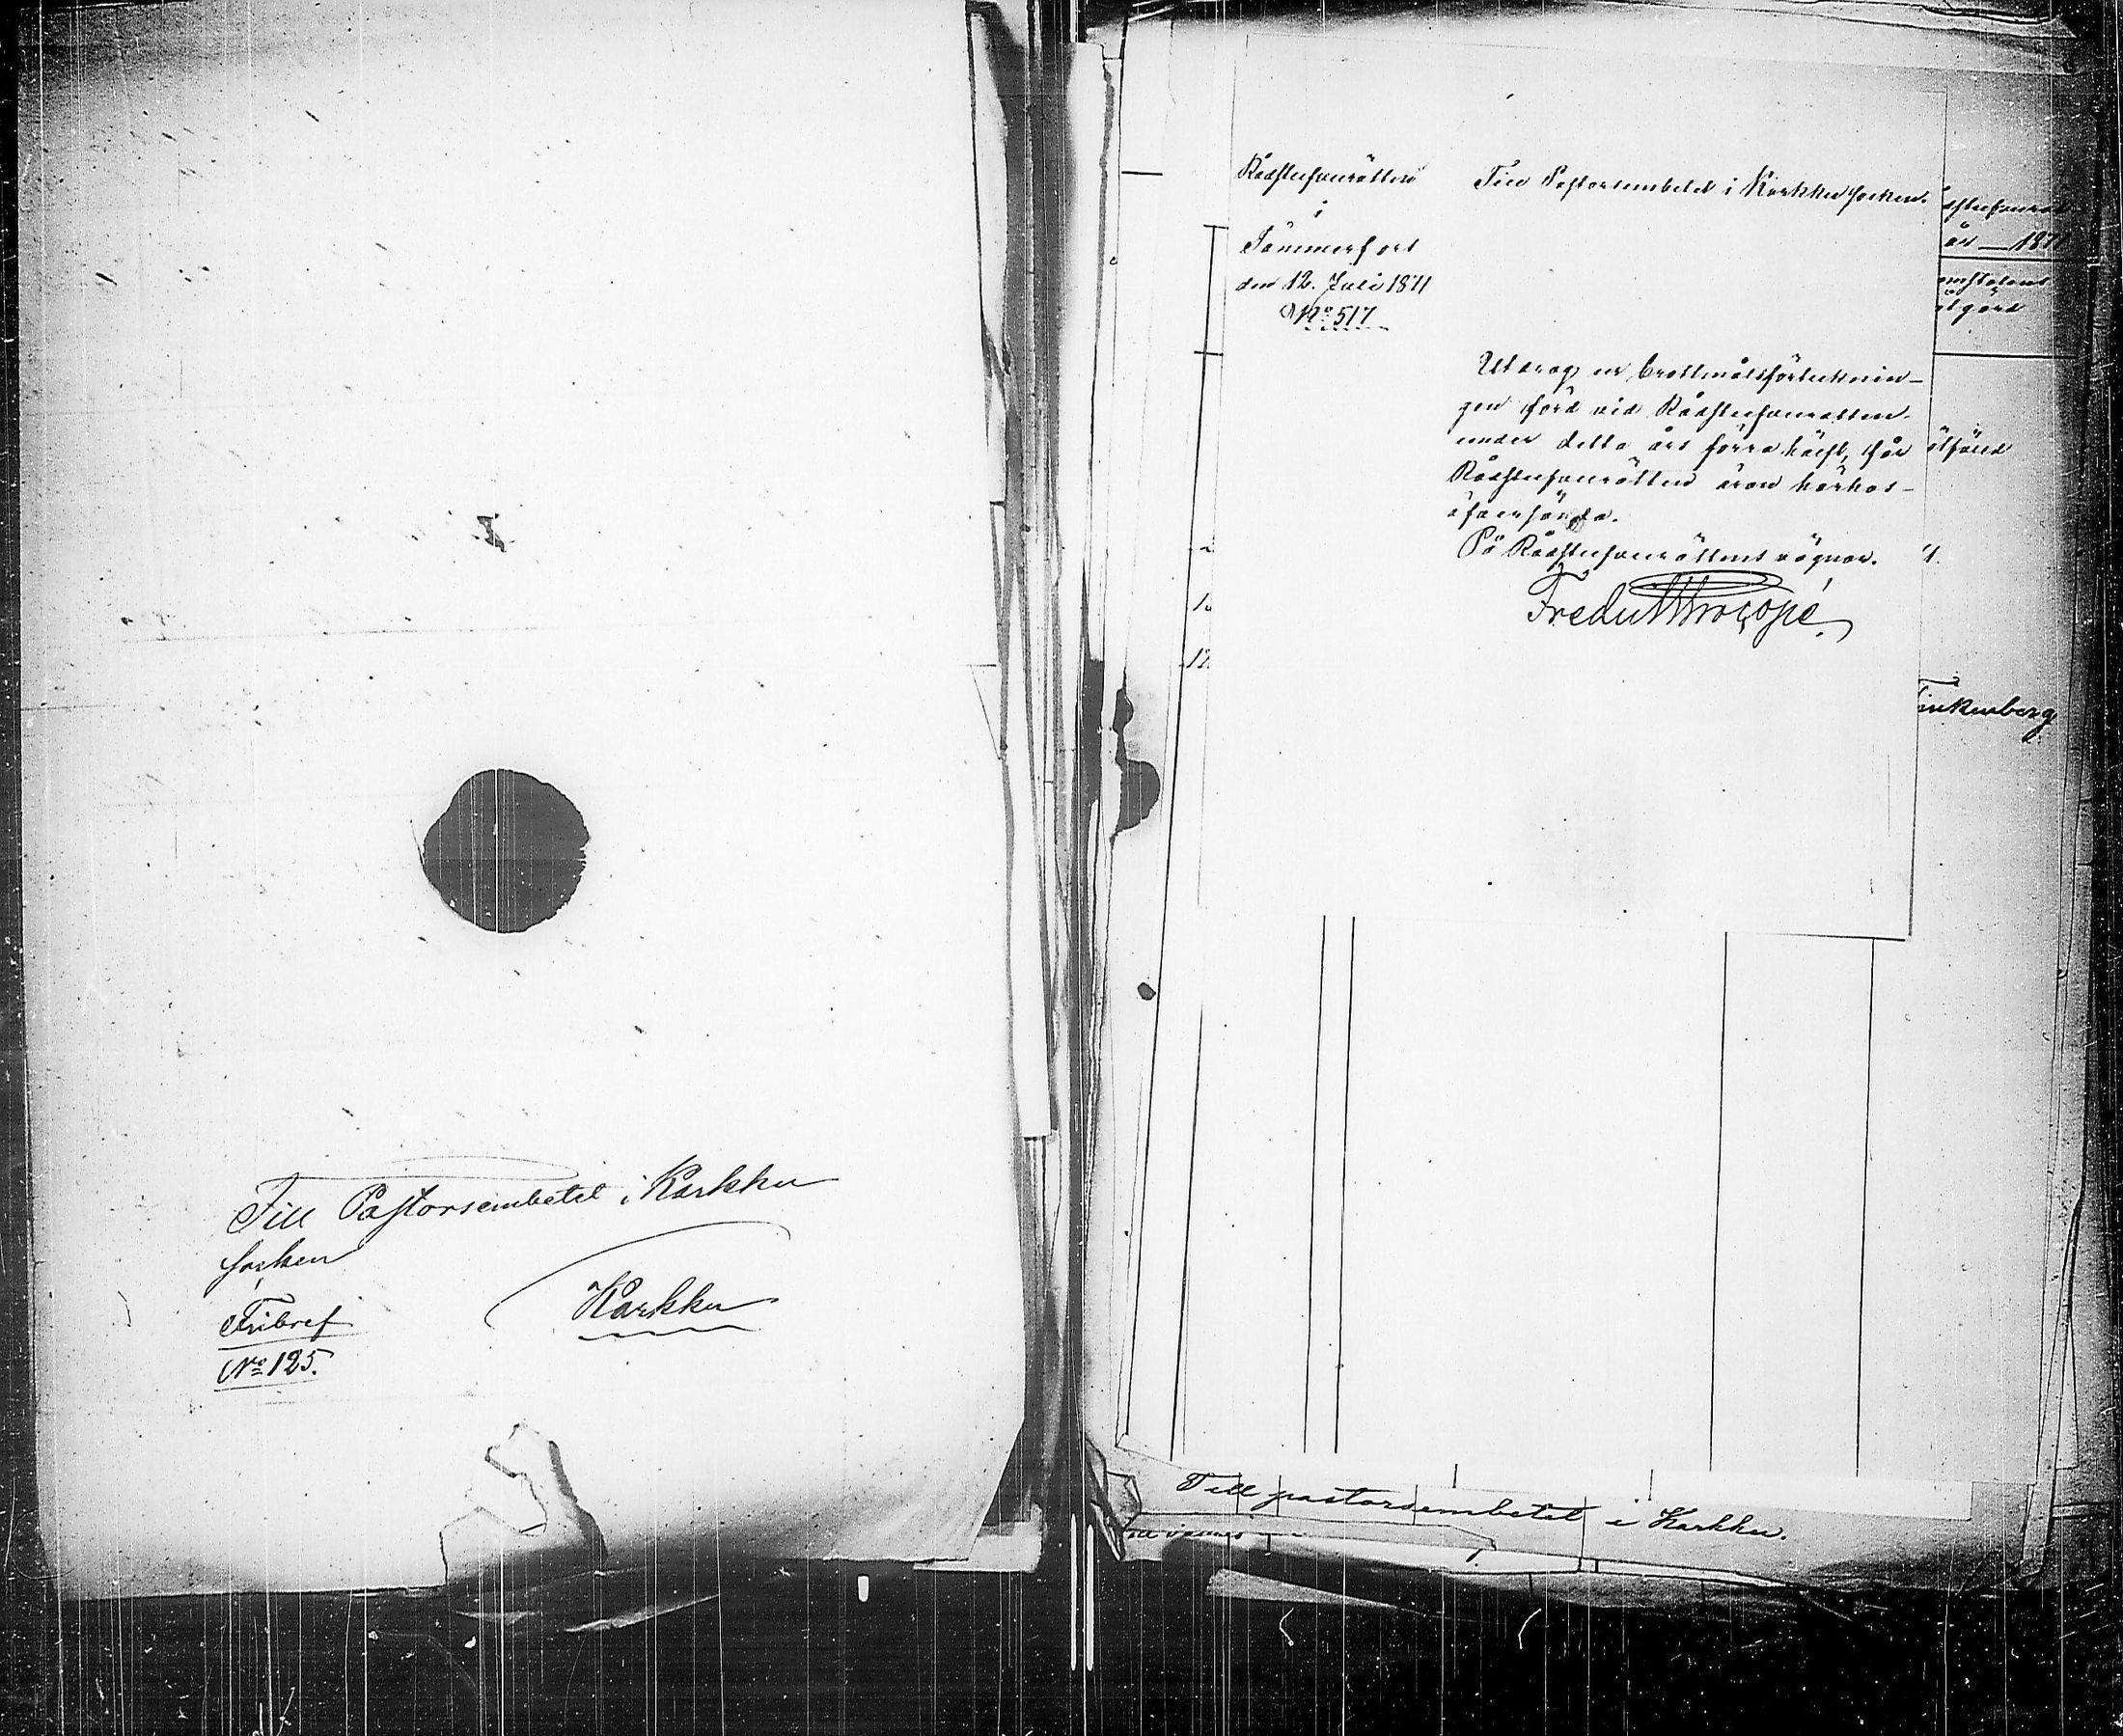 Till Pastorsembetet i Karkku
socken
Fribref
No 125.
Karkku
Rådstufvurätten
i
Tammerfors
den 12. Juli 1871
No 517
Till Pastorsembetet i Karkku socken.
Utdrag ur brottmålsförtecknin-
gen förd vid Rådstufvurätten
under detta års förra hälft, får
Rådstufvurätten äran härhos
öfversända.
På Rådstufvurättens vägnar.
Fredr Procopé
år — 1871
omstolens
åtgärd
Till pastorsembetet i Karkku.